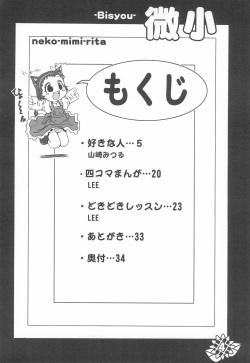 -Bisyou-
微小
neko-mimi-rita
もくじ
・好きな人…5
山崎みつる
・四コマまんが…20
LEE
・どきどきレッスン…23
LEE
・あとがき…33
・奥付…34
4